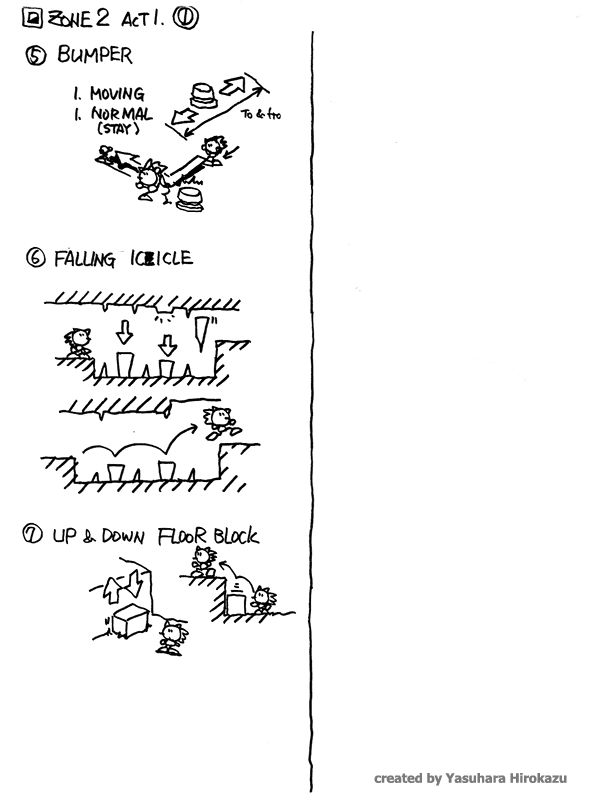 ZONE 2 ACT 1. ①
⑤ BUMPER
1. MOVING
1. NORMAL
(STAY)
To & fro
⑥ FALLING ICEICLE
⑦ UP & DOWN FLOOR BLOCK
created by Yasuhara Hirokazu